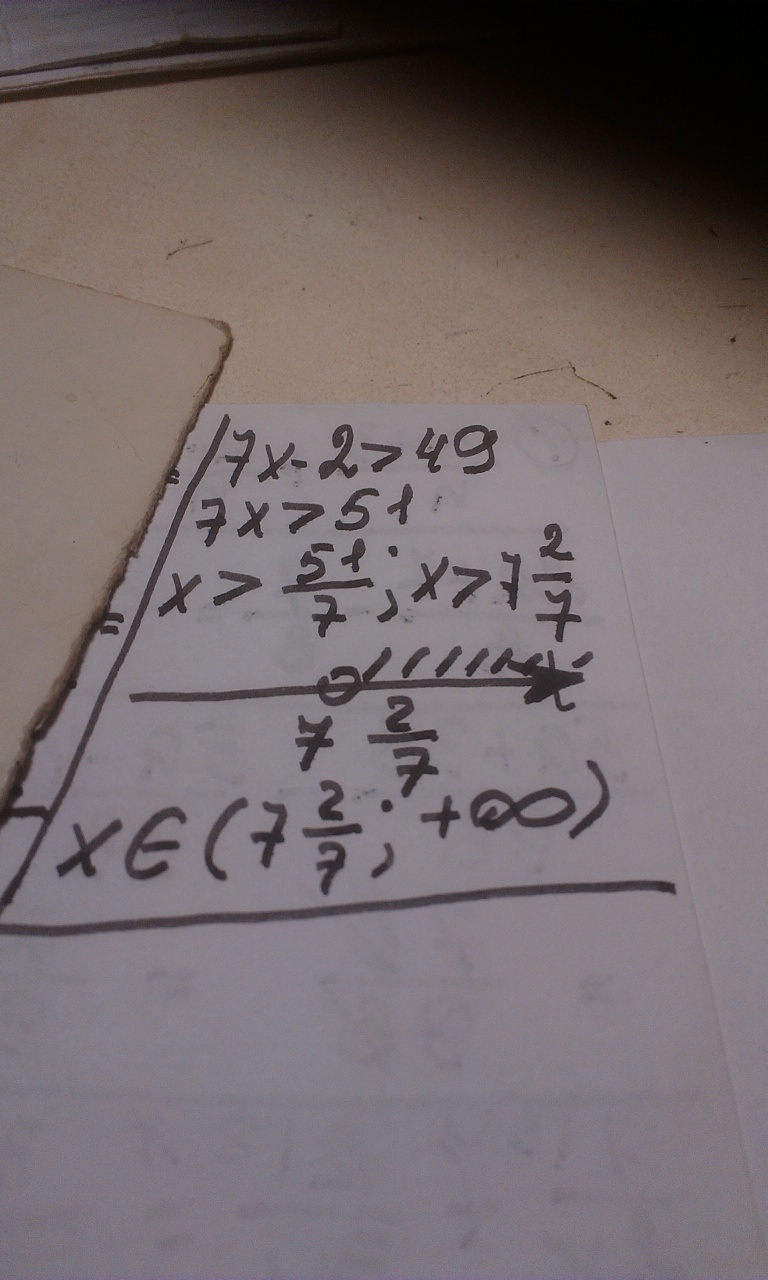 7x-2>49
7x>51
x> 51/7; x>7 2/7
x
7 2/7
x∈(7 2/7; +∞)